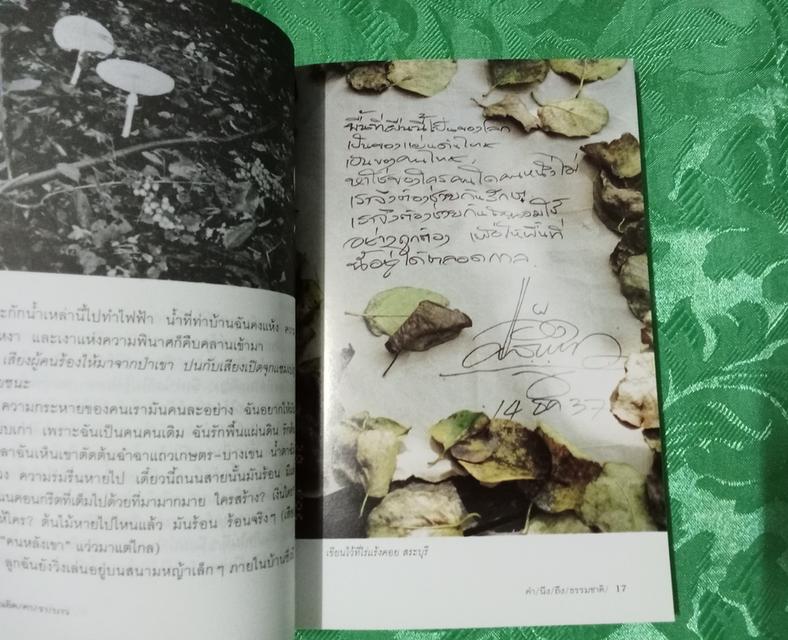 ะกักน้ำเหล่านี้ไปทำไฟฟ้า น้ำที่ท่าบ้านฉันคงแห้ง
เหงา และเงาแห่งความพินาศก็คืบคลานเข้ามา
เสียงผู้คนร้องไห้มาจากป่าเขา ปนกับเสียงเปิดจุกแชมเปญ
ยชนะ
ความกระหายของคนเรามันคนละอย่าง ฉันอยากให้
บบเก่า เพราะฉันเป็นคนคนเดิม ฉันรักพื้นแผ่นดิน
ลาฉันเห็นเขาตัดต้นฉำฉาแถวเกษตร-บางเขน น้ำตา
วง ความร่มรื่นหายไป เดี๋ยวนี้ถนนสายนั้นมันร้อน
นนคอนกรีตที่เต็มไปด้วยที่มามากมาย ใครสร้าง?
ให้ใคร? ต้นไม้หายไปไหนแล้ว มันร้อน ร้อนจริงๆ
"คนหลังเขา" แว่วมาแต่ไกล)
ลูกฉันยังวิ่งเล่นอยู่บนสนามหญ้าเล็กๆ ภายในบ้าน
พื้นที่ผืนนี้เป็นของโลก
เป็นของแผ่นดินไทย
เป็นของคนไทย
หาใช่ของใครคนใดคนหนึ่งไม่
เราจึงต้องช่วยกันรักษา
เราจึงต้องช่วยกัน
อย่างถูกต้อง เพื่อให้พื้นที่
นี้อยู่ได้ตลอดกาล
14 ธค 37
เขียนไว้ที่ไร่แก่งคอย สระบุรี
คำ/นึง/ถึง/ธรรมชาติ/ 17